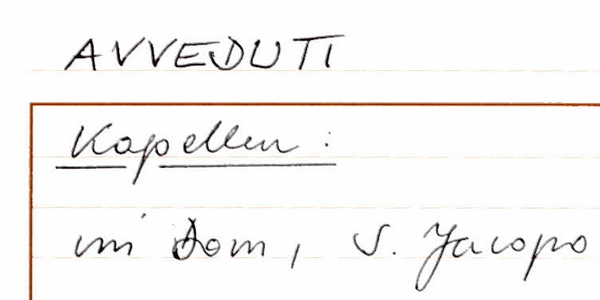 AVVEDUTI
Kapellen:
im Dom, S. Jacopo